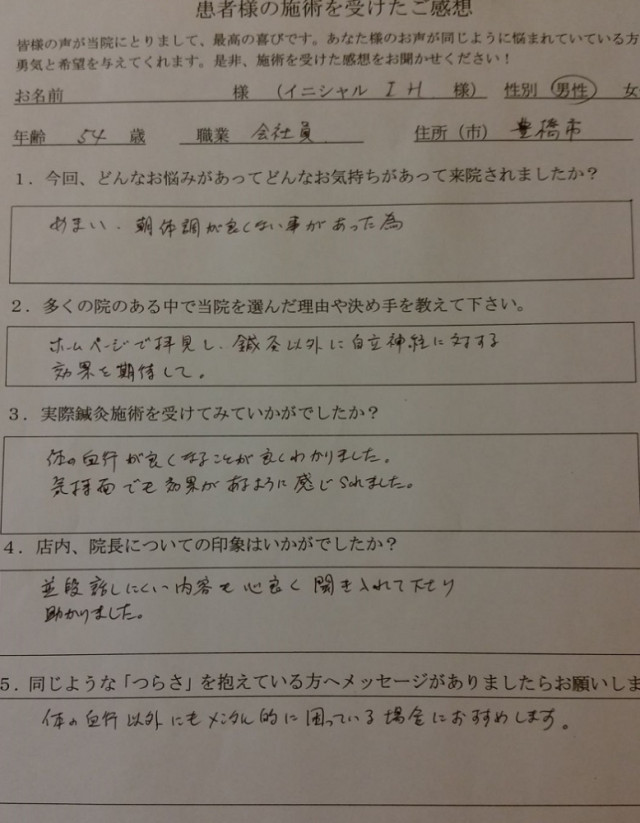 患者様の施術を受けたご感想
皆様の声が当院にとりまして、最高の喜びです。あなた様のお声が同じように悩まれていている方
勇気と希望を与えてくれます。是非、施術を受けた感想をお聞かせください！
お名前 様 （イニシャル I H 様） 性別 男性 女
年齢 54 歳 職業 会社員 住所（市） 豊橋市
1．今回、どんなお悩みがあってどんなお気持ちがあって来院されましたか？
めまい、朝体調が良くない事があった為
2．多くの院のある中で当院を選んだ理由や決め手を教えて下さい。
ホームページで拝見し、鍼灸以外に自立神経に対する
効果を期待して。
3．実際鍼灸施術を受けてみていかがでしたか？
体の血行が良くなることが良くわかりました。
気持面でも効果があるように感じられました。
4．店内、院長についての印象はいかがでしたか？
並段話しにくい内容も心良く聞き入れて下さり
助かりました。
5．同じような「つらさ」を抱えている方へメッセージがありましたらお願いしま
体の血行以外にもメンタル的に困っている場合におすすめします。